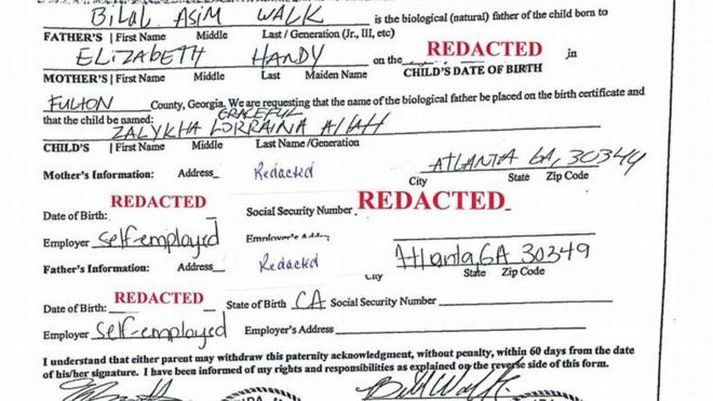 BILAL ASIM WALK is the biological (natural) father of the child born to
FATHER'S | First Name Middle Last / Generation (Jr., III, etc)
ELIZABETH HANDY on the REDACTED in
MOTHER'S | First Name Middle Last Maiden Name CHILD'S DATE OF BIRTH
FULTON County, Georgia. We are requesting that the name of the biological father be placed on the birth certificate and
that the child be named: GRACEFUL
ZALYKHA LORRAINA Allah
CHILD'S | First Name Middle Last Name /Generation
Mother's Information: Address Redacted ATLANTA GA, 30344
City State Zip Code
Date of Birth: REDACTED Social Security Number REDACTED
Employer self-employed Employer's
Father's Information: Address Redacted Atlanta, GA 30349
City State Zip Code
Date of Birth: REDACTED State of Birth CA Social Security Number
Employer self-employed Employer's Address
I understand that either parent may withdraw this paternity acknowledgment, without penalty, within 60 days from the date
of his/her signature. I have been informed of my rights and responsibilities as explained on the reverse side of this form.